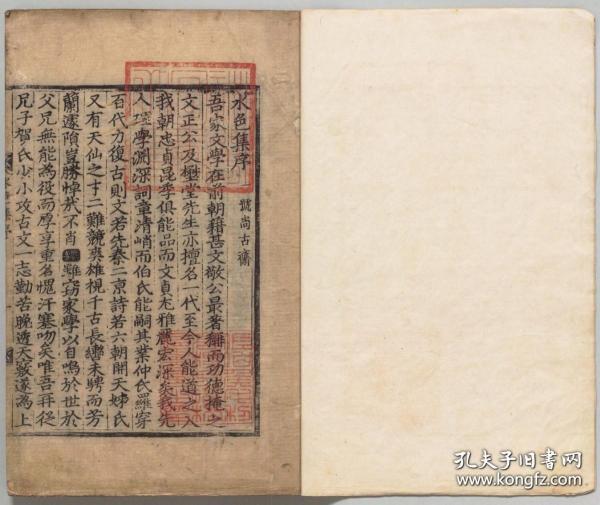 水色集序
號尚古齋
吾家文學在前朝籍甚文敬公最著雖而功德掩之
文正公及樾堂先生亦擅名一代至今人能道之入
我朝忠貞昆季俱能品而文貞尤雅麗宏深矣我先
人瓊學淵深詞章清峭而伯氏能嗣其業仲氏羅穿
百代力復古則文若先秦二京詩若六朝開天姊氏
又有天仙之才二難競爽雄視千古長轡未騁而芳
蘭遽隕豈勝悼哉不肖 雖竊家學以自鳴於世於
父兄無能為役而厚享重名愧汗塞吻矣唯吾再從
兄子賀氏少小攻古文一志勤苦晚透天竅遂為上
孔夫子旧书网
www.kongfz.com